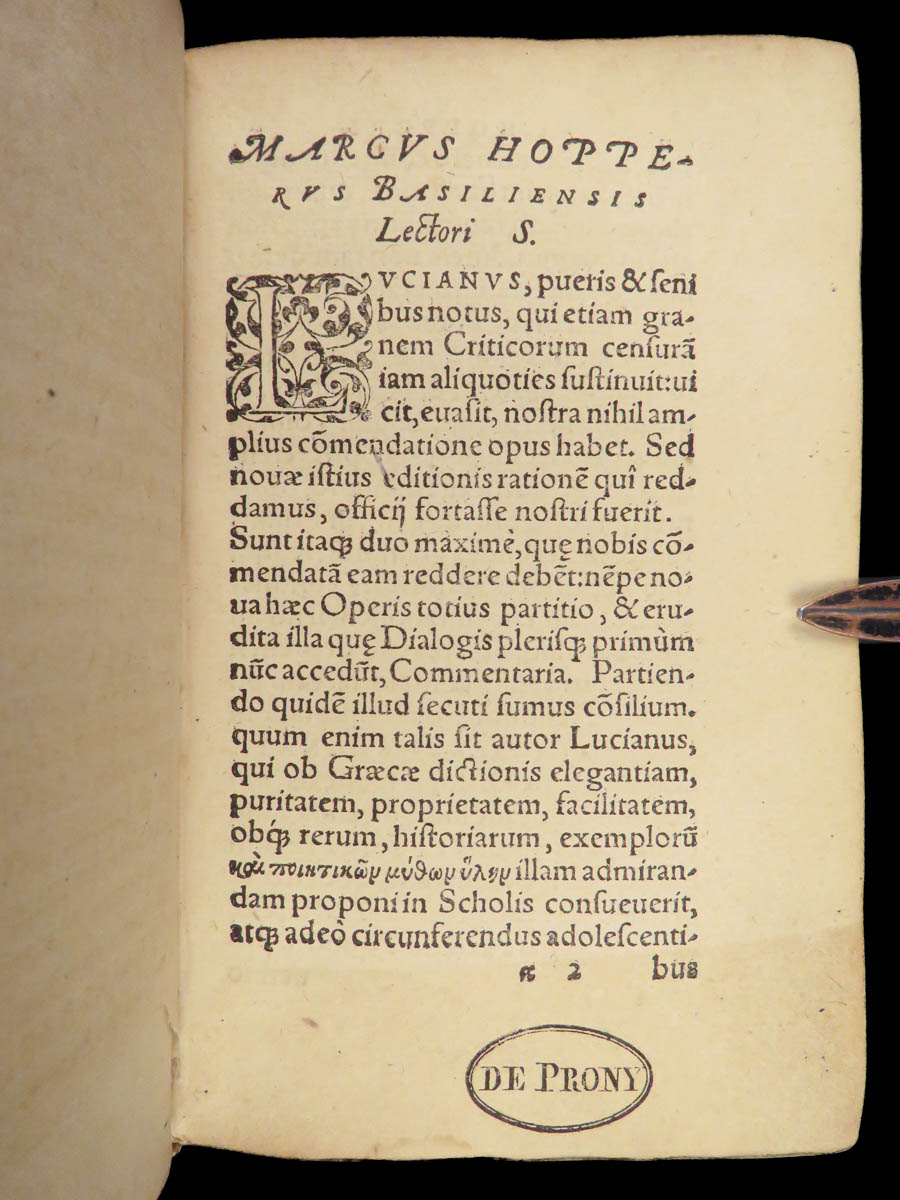 MARCVS HOPPE-
RVS BASILIENSIS
Lectori S.
LVCIANVS, pueris & ſeni
bus notus, qui etiam gra-
uem Criticorum cenſurā
iam aliquoties ſuſtinuit: ui
cit, euaſit, noſtra nihil am-
plius cōmendatione opus habet. Sed
nouæ iſtius editionis rationē quî red-
damus, officij fortaſſe noſtri fuerit.
Sunt itaq; duo maximè, quę nobis cō-
mendatā eam reddere debēt: nēpe no-
ua hæc Operis totius partitio, & eru-
dita illa quę Dialogis pleriſq; primùm
nūc accedūt, Commentaria. Partien-
do quidē illud ſecuti ſumus cōſilium.
quum enim talis ſit autor Lucianus,
qui ob Græcæ dictionis elegantiam,
puritatem, proprietatem, facilitatem,
obq́; rerum, hiſtoriarum, exemplorū
καὶ ποιητικῶν μύθων ὕλην illam admiran-
dam proponi in Scholis conſueuerit,
atq; adeò circunferendus adoleſcenti-
α 2 bus
DE PRONY